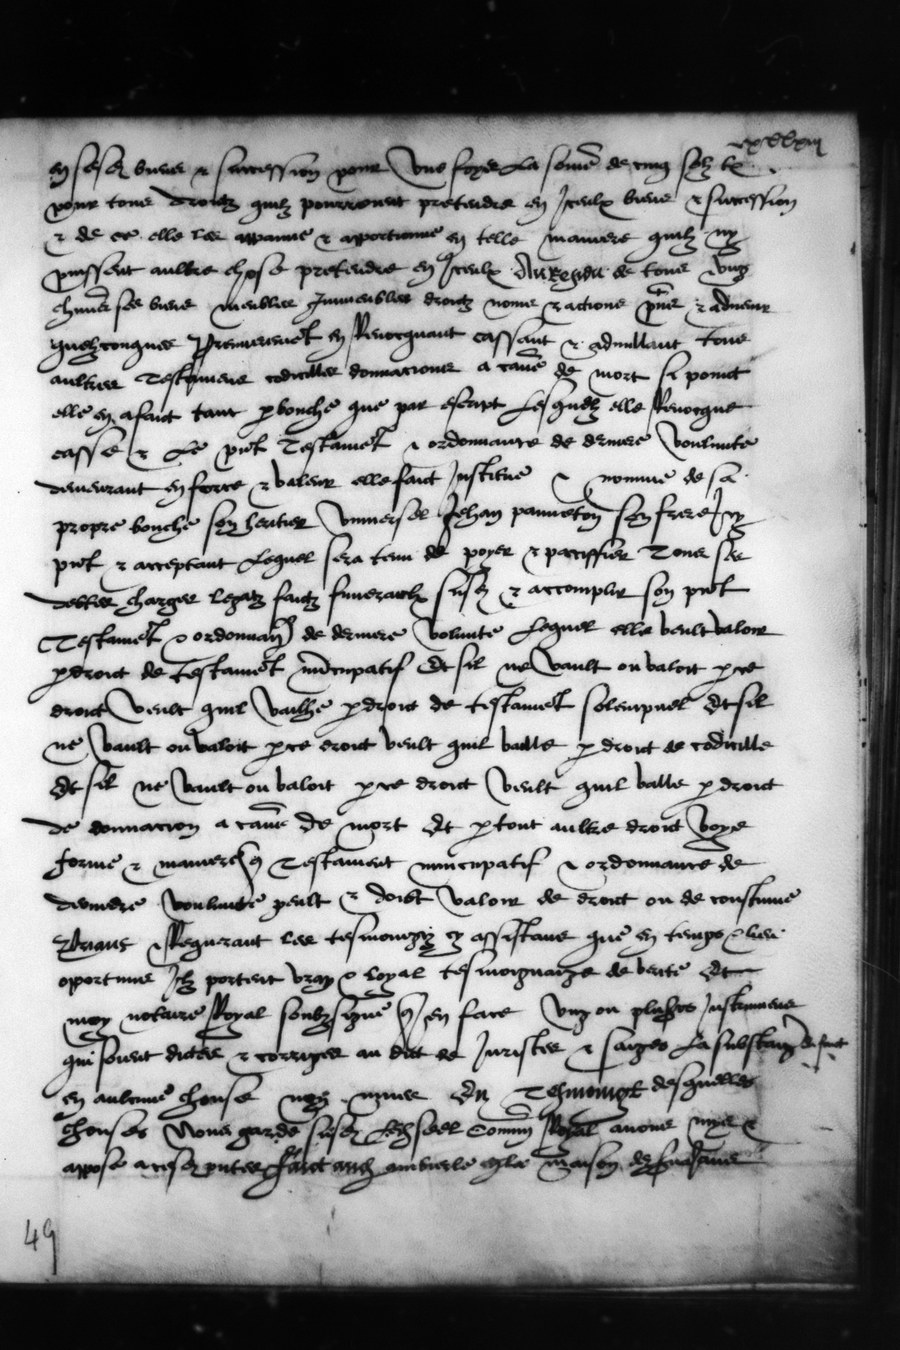 en ses biens & succession pour une foys la some de cinq solz tz
pour tous droictz quilz pourroient pretendre en iceulx biens & succession
& de ce elle les appanne & apportionne en telle maniere quilz ny
puissent aultre chose pretendre en iceulx Au Residu de tous ung
chūns ses biens meubles Immeubles droictz noms & actions pñs & advenir
quelzconques Premieremēt en Revocquant cassant & adnullant tous
aultres Testamens codicilles donnacions a cause de mort si point
elle en a faict tant p bouche que par escript Lesquelz elle Revocque
casse & Le pñt Testamēt & ordonnance de derniere voulunte
demeurant en force & valeur elle faict Institue & nomme de sa
propre bouche son heritier universel Jehan panneton son frere Icy
pñt & acceptant Lequel sera tenu de poyer & pacissier Tous ses
debtes charges legatz faictz funeraulx susd & accomplir son pñt
Testamēt & ordonnance de derniere volunte Lequel elle veult valoir
p droict de testamēt nūcupatif Et sil ne vault ou valoit p ce
droict veult quil vailhe p droict de testamēt solempnel Et sil
ne vault ou valoit p ce droict veult quil valle p droict de codicille
Et sil ne vault ou valoit p ce droict veult quil valle p droict
de donnacion a cause de mort Et p tout aultre droict voye
forme & maniere q Testament nuncupatif & ordonnance de
derniere voulunte peult & doibt valoir de droict ou de coustume
Priant & Requerant les tesmoingz cy assistans que en temps & lieu
oportuns Ilz portent vray & loyal tesmoignaige de verite Et
moy notaire Royal soubzsigne q Jen face ung ou plusrs Instrumens
qui soient dictes & corriges au dict de Juristes & saiges La substance de faict
en aulcune chouse non muee En Tesmoingt desquelles
chouses Nous garde susd Ledseel Commū Royal avons mys &
appose a ces pñtes Faict and maison de